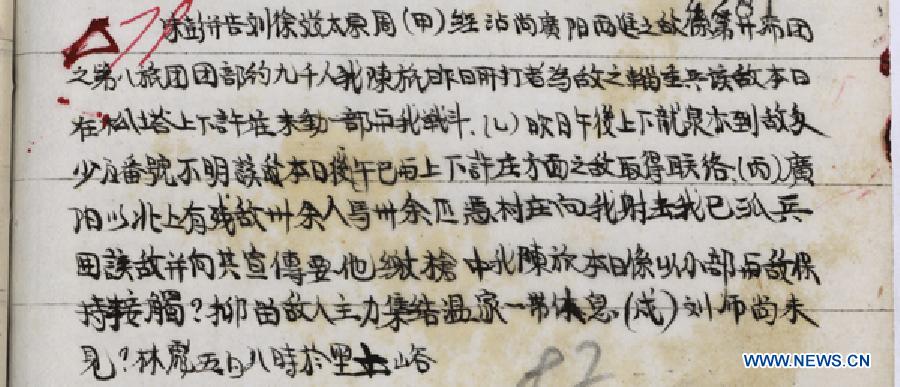 朱彭并告刘徐并太原周(甲)经沾尚廣阳西进之敌係第廿师团
之第八旅团团部约九千人我陳旅昨日所打者为敌之輜重兵該敌本日
在松塔上下許庄未動一部与我战斗.(乙)昨日午後上下龍泉亦到敌多
少及番號不明該敌本日後午已与上下許庄方面之敌取得联络.(丙)廣
阳以北上有残敌卅余人馬卅余匹 村庄向我射击我已派兵
围該敌并向其宣傳要他繳槍 中我陳旅本日係以小部与敌保
持接觸?抑由敌人主力集结温家一带休息.(戍)刘师尚未
見?林彪五日八時於里土峪
82
WWW.NEWS.CN